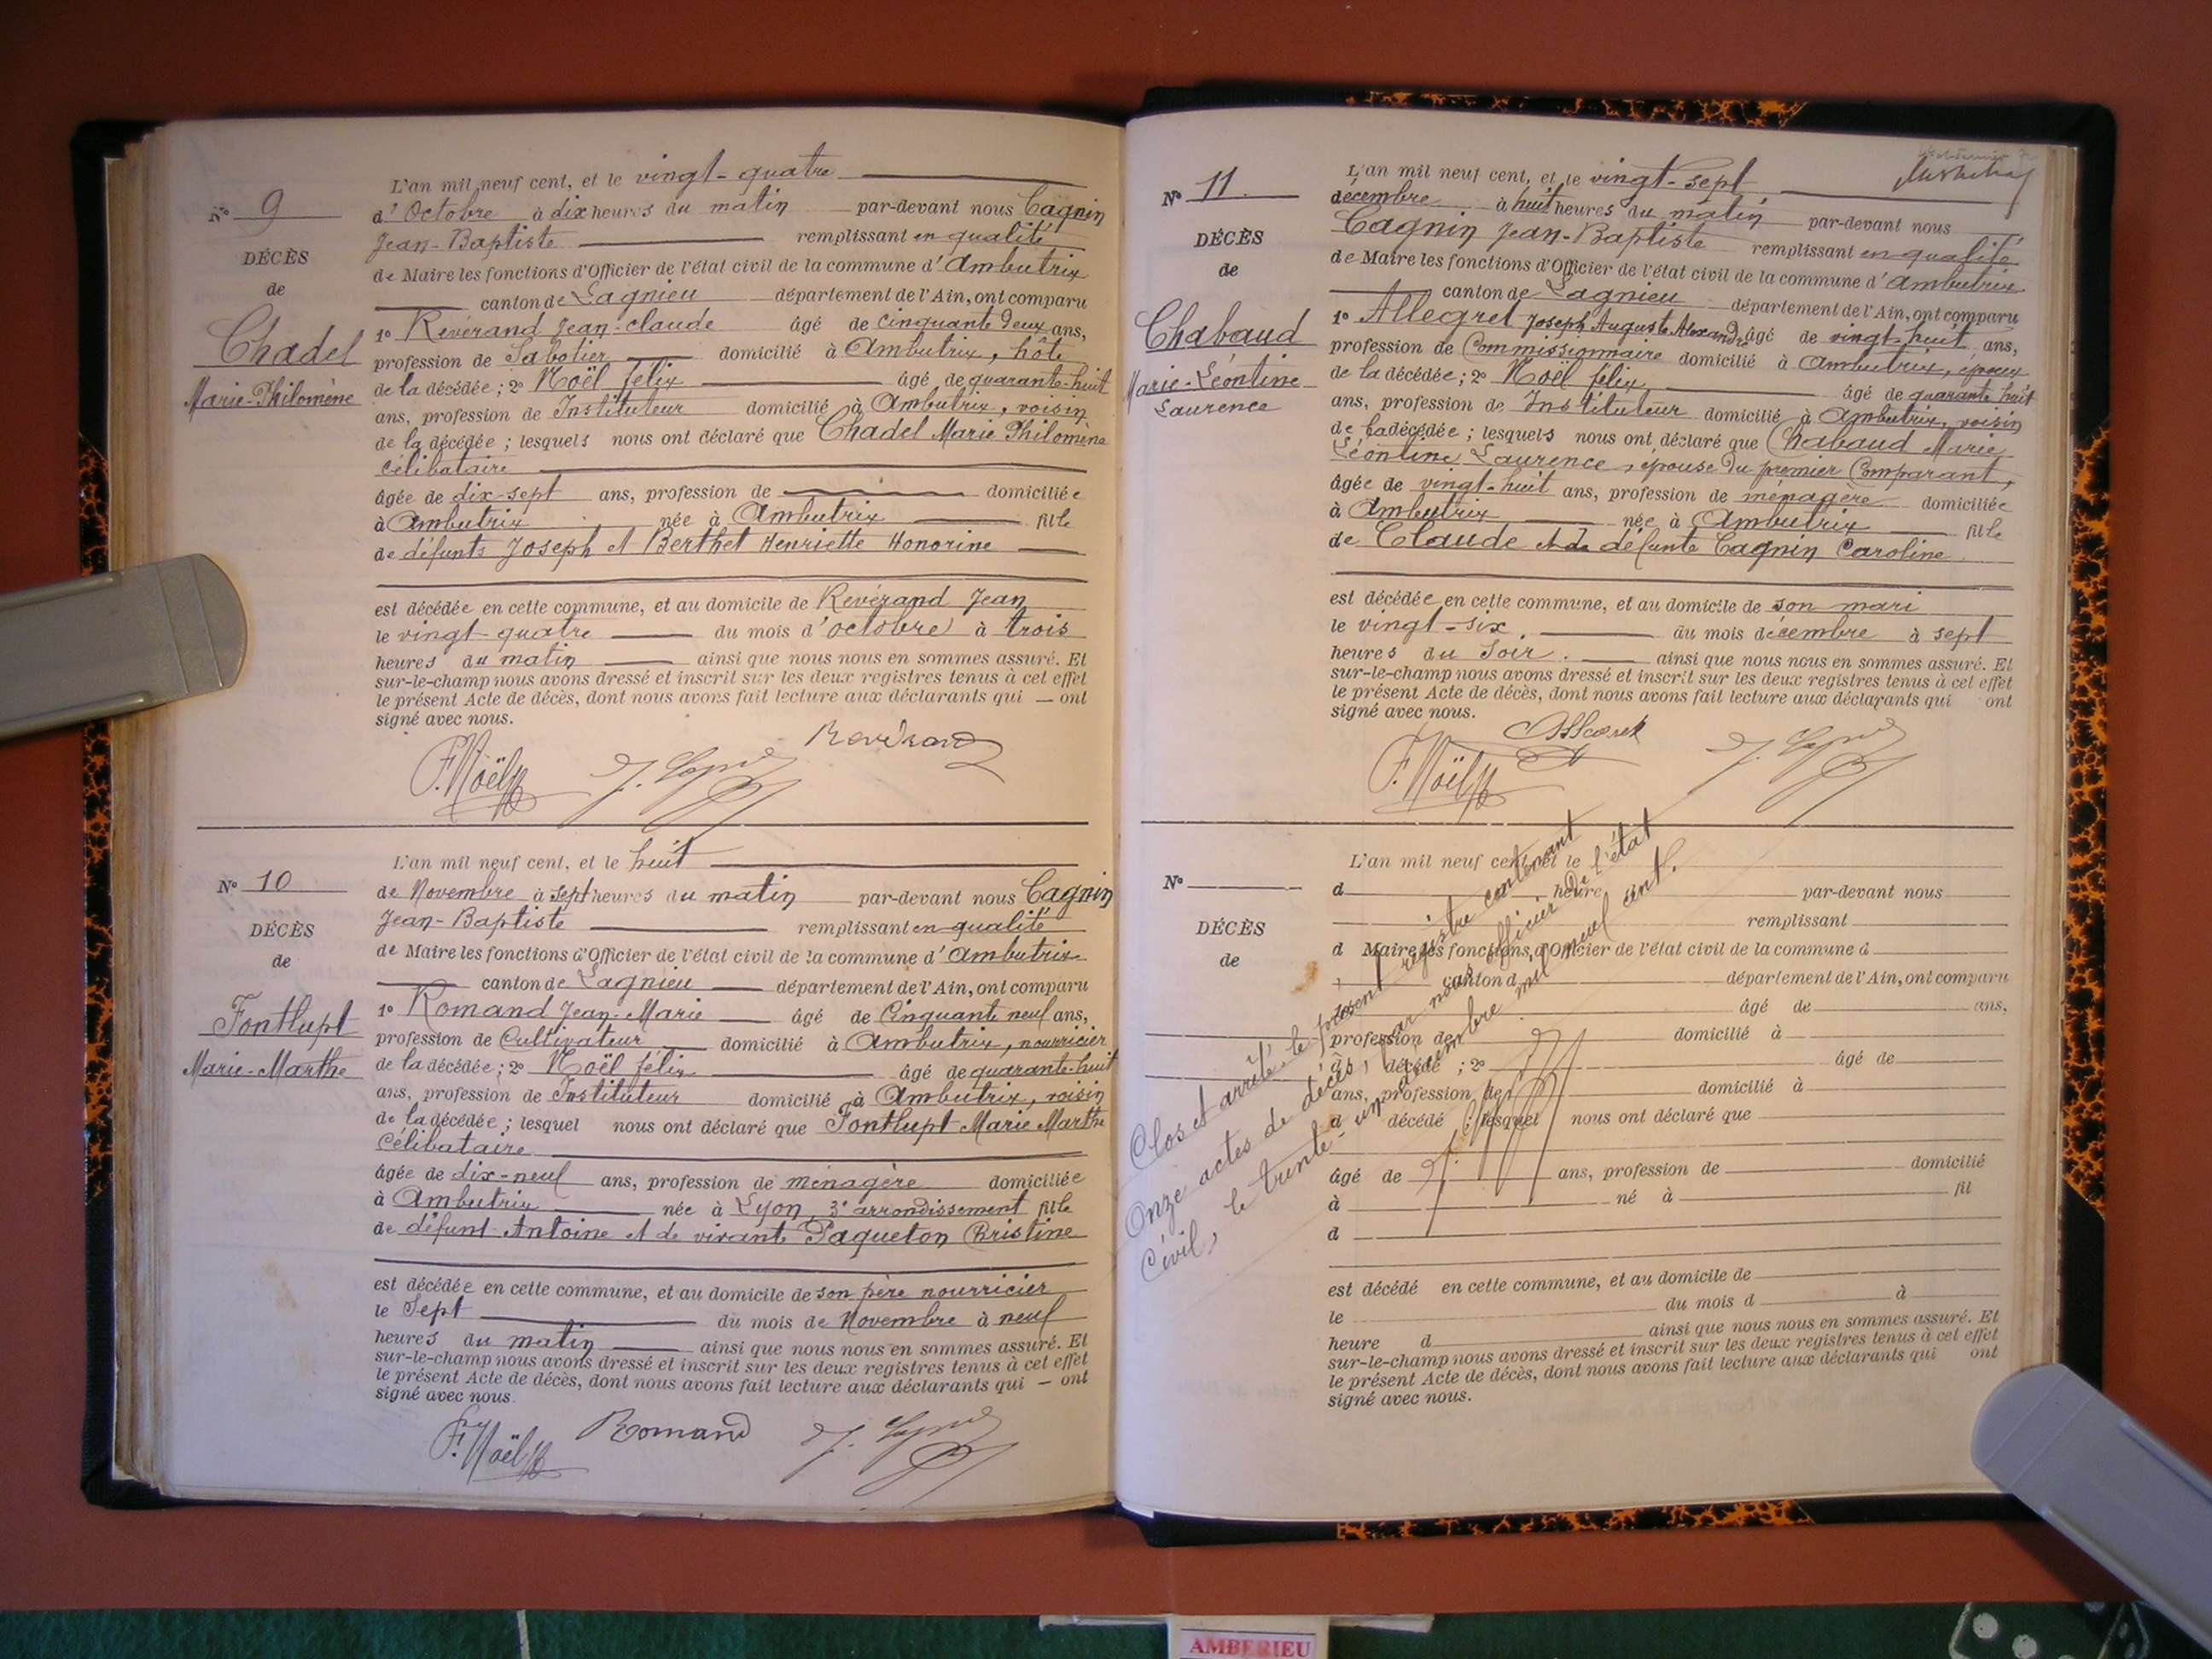 N° 9
DÉCÈS
de
Chadel
Marie-Philomène
L'an mil neuf cent, et le vingt-quatre
d'Octobre à dix heures du matin par-devant nous Cagnin
Jean-Baptiste remplissant en qualité
de Maire les fonctions d'Officier de l'état civil de la commune d'Ambutrix
canton de Lagnieu département de l'Ain, ont comparu
1° Revérand Jean-claude âgé de Cinquante deux ans,
profession de Sabotier domicilié à Ambutrix, hôte
de la décédée; 2° Noël félix âgé de quarante-huit
ans, profession de Instituteur domicilié à Ambutrix, voisin
de la décédée; lesquels nous ont déclaré que Chadel Marie Philomène
célibataire
âgée de dix-sept ans, profession de domiciliée
à Ambutrix née à Ambutrix fille
de défunts Joseph et Berthet Henriette Honorine
est décédée en cette commune, et au domicile de Revérand Jean
le vingt-quatre du mois d'octobre à trois
heures du matin ainsi que nous nous en sommes assuré. Et
sur-le-champ nous avons dressé et inscrit sur les deux registres tenus à cet effet
le présent Acte de décès, dont nous avons fait lecture aux déclarants qui — ont
signé avec nous.
Reverand
F. Noël
N° 10
DÉCÈS
de
Fontlupt
Marie-Marthe
L'an mil neuf cent, et le huit
de Novembre à sept heures du matin par-devant nous Cagnin
Jean-Baptiste remplissant en qualité
de Maire les fonctions d'Officier de l'état civil de la commune d'Ambutrix
canton de Lagnieu département de l'Ain, ont comparu
1° Romand Jean-Marie âgé de Cinquante neuf ans,
profession de Cultivateur domicilié à Ambutrix, nourricier
de la décédée; 2° Noël félix âgé de quarante-huit
ans, profession de Instituteur domicilié à Ambutrix, voisin
de la décédée; lesquel nous ont déclaré que Fontlupt Marie Marthe
Célibataire
âgée de dix-neuf ans, profession de ménagère domiciliée
à Ambutrix née à Lyon, 3e arrondissement fille
de défunt Antoine et de vivante Paqueton Christine
est décédée en cette commune, et au domicile de son père nourricier
le Sept du mois de Novembre à neuf
heures du matin ainsi que nous nous en sommes assuré. Et
sur-le-champ nous avons dressé et inscrit sur les deux registres tenus à cet effet
le présent Acte de décès, dont nous avons fait lecture aux déclarants qui — ont
signé avec nous.
F. Noël Romand
N° 11
DÉCÈS
de
Chabaud
Marie-Léontine
Laurence
L'an mil neuf cent, et le vingt-sept
décembre à huit heures du matin par-devant nous
Cagnin Jean-Baptiste remplissant en qualité
de Maire les fonctions d'Officier de l'état civil de la commune d'Ambutrix
canton de Lagnieu département de l'Ain, ont comparu
1° Allegret Joseph Auguste Alexandre âgé de vingt-huit ans,
profession de Commissionnaire domicilié à Ambutrix, époux
de la décédée; 2° Noël félix, âgé de quarante huit
ans, profession de Instituteur domicilié à Ambutrix, voisin
de la décédée; lesquels nous ont déclaré que Chabaud Marie
Léontine Laurence, épouse du premier Comparant,
âgée de vingt-huit ans, profession de ménagère domiciliée
à Ambutrix née à Ambutrix fille
de Claude et de défunte Cagnin Caroline
est décédée en cette commune, et au domicile de son mari
le vingt-six. du mois décembre à sept
heures du soir. ainsi que nous nous en sommes assuré. Et
sur-le-champ nous avons dressé et inscrit sur les deux registres tenus à cet effet
le présent Acte de décès, dont nous avons fait lecture aux déclarants qui ont
signé avec nous.
F. Noël
N°
DÉCÈS
de
L'an mil neuf cent, et le
d heure par-devant nous
remplissant
d Maire les fonctions d'Officier de l'état civil de la commune d
canton d département de l'Ain, ont comparu
âgé de ans,
profession de domicilié à
d décédé ; 2° âgé de
ans, profession de domicilié à
d décédé ; lesquel nous ont déclaré que
âgé de ans, profession de domicilié
à né à fil
d
est décédé en cette commune, et au domicile de
le du mois d à
heure d ainsi que nous nous en sommes assuré. Et
sur-le-champ nous avons dressé et inscrit sur les deux registres tenus à cet effet
le présent Acte de décès, dont nous avons fait lecture aux déclarants qui ont
signé avec nous.
Clos et arrêté le présent registre contenant
Onze actes de décès, par nous officier de l'état
Civil, le trente-un décembre mil neuf cent.
AMBERIEU